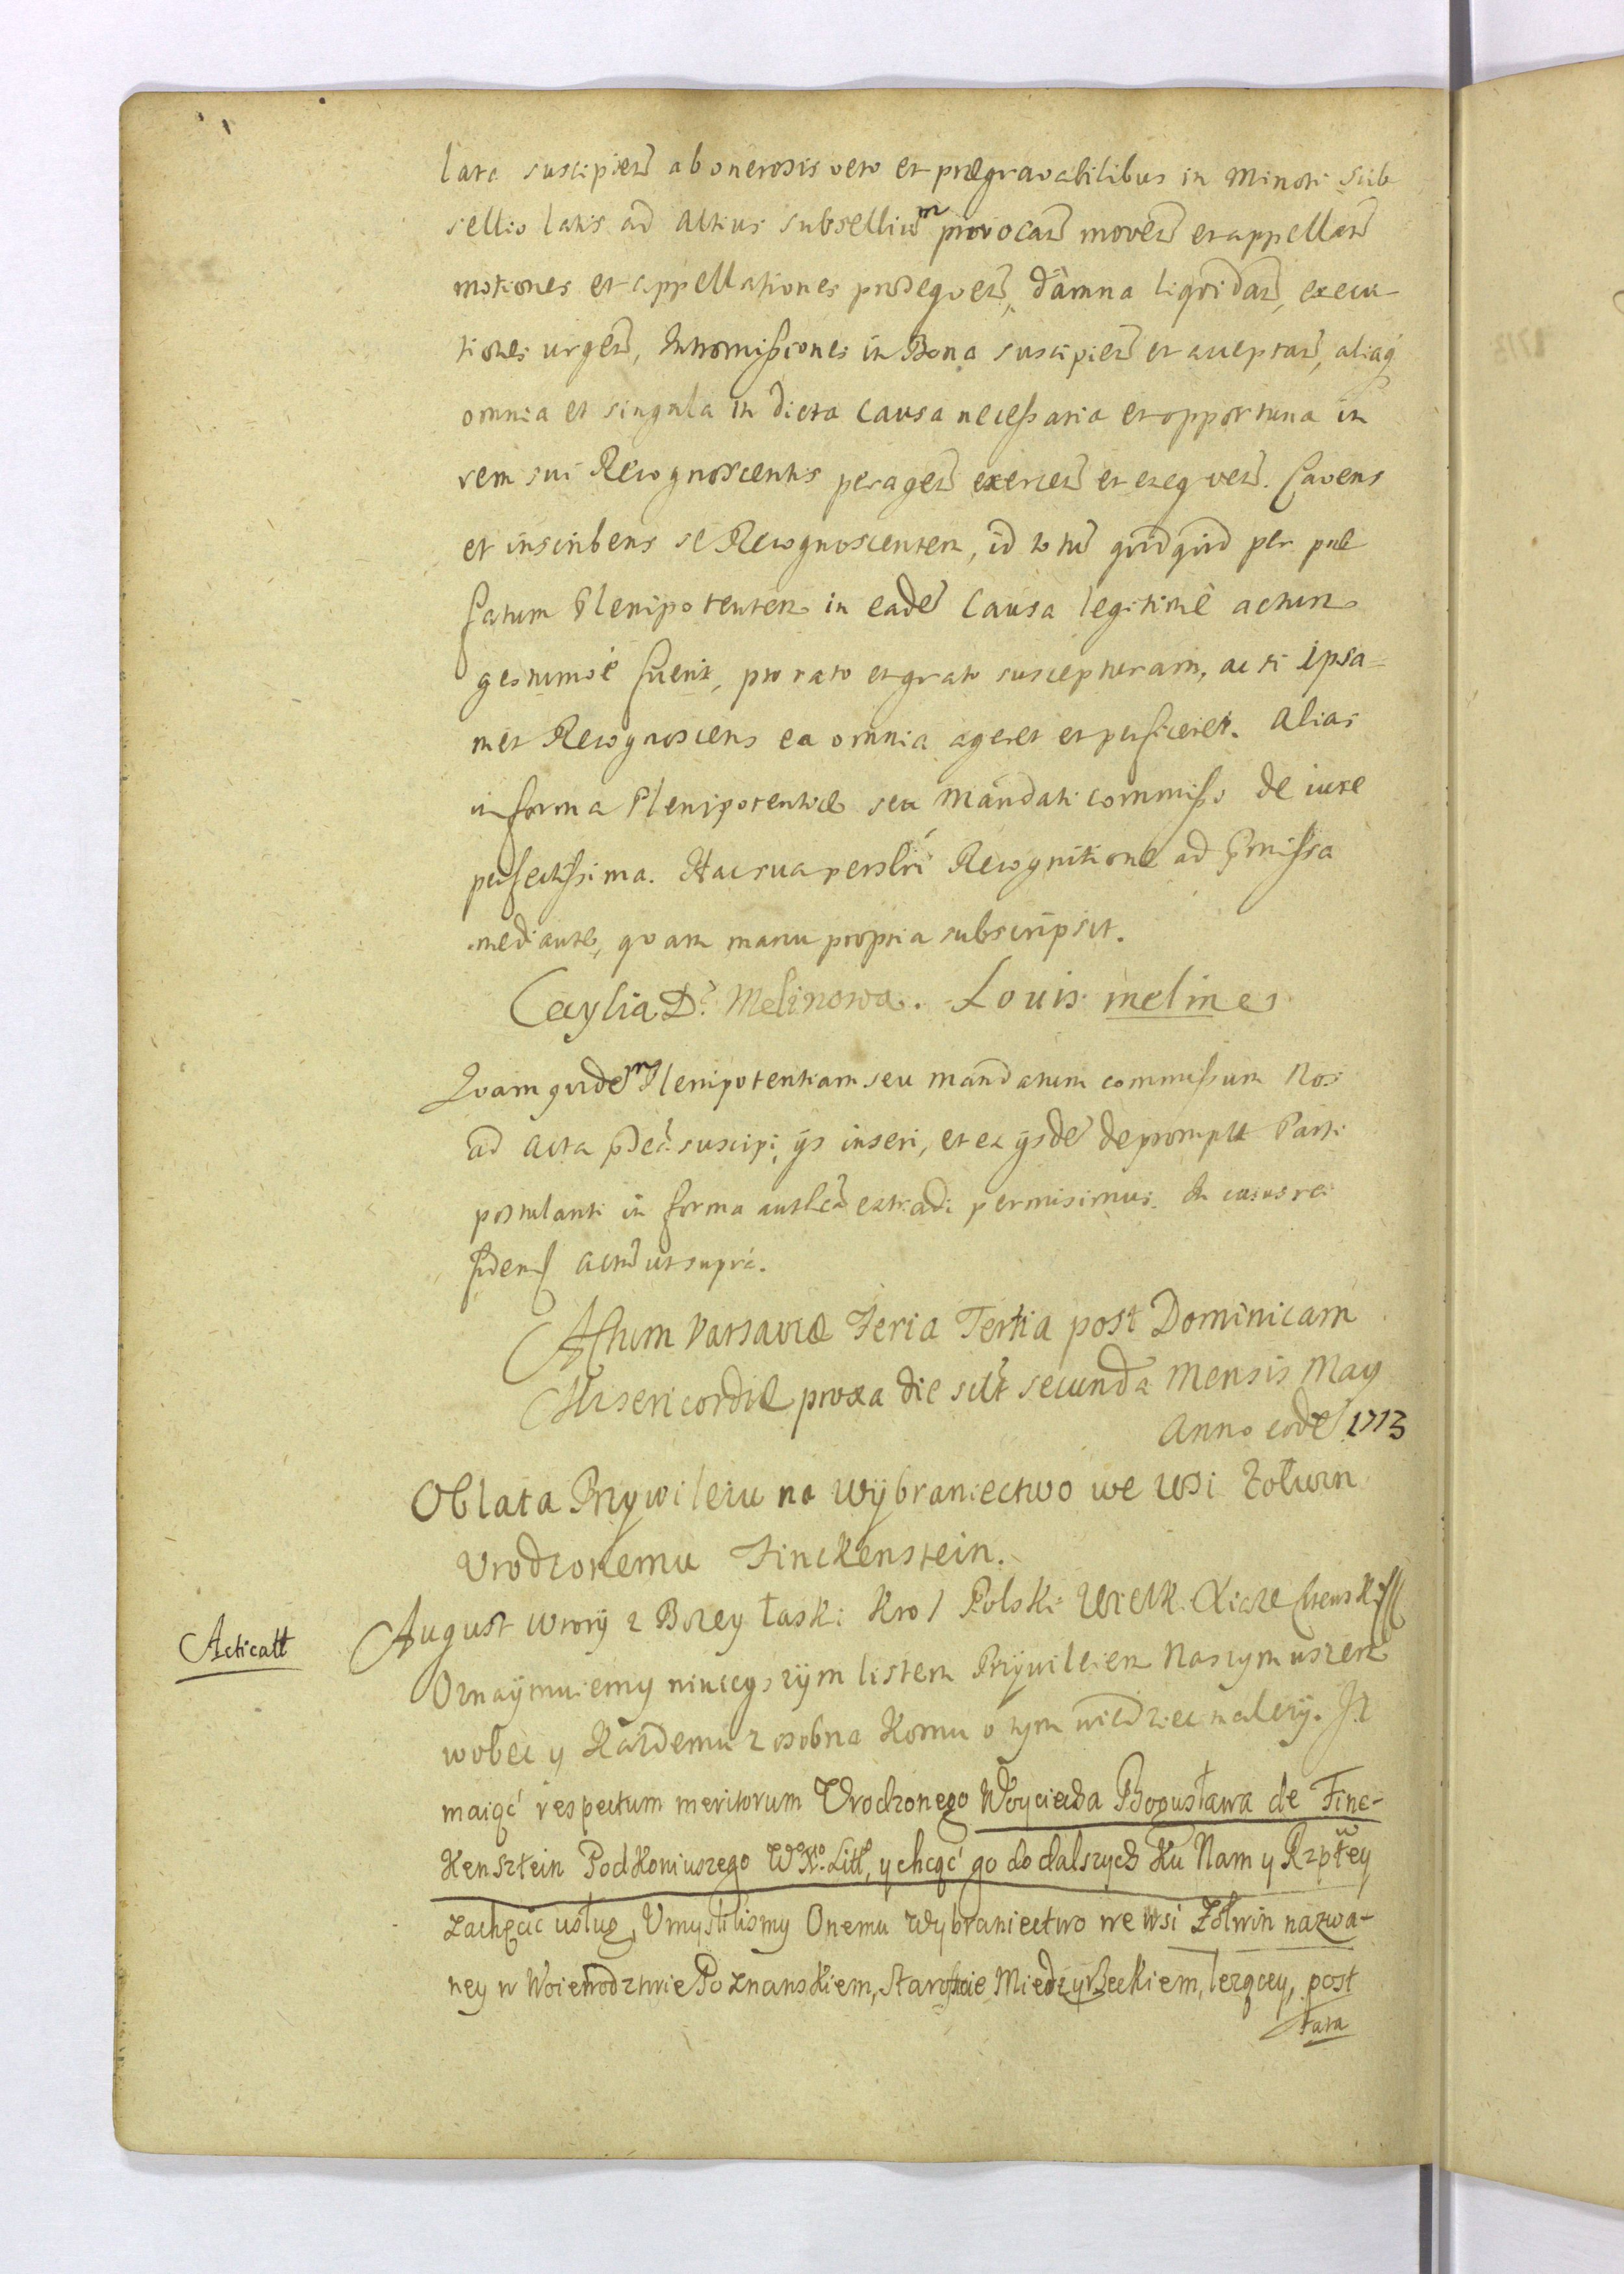 lata suscipien͂ ab onerosis vero et prægravabilibus in Minori Sub
sellio latis ad Altius subselliu͂m provocan͂ moven͂ et appellan͂
motiones et appellationes proseqven͂, damna liqvidan͂, execu-
tiones urgen͂, Intromißiones in Bona suscipien͂ et acceptan͂, aliaq́
omnia et singula in dicta Causa neceßaria et opportuna in
rem sui Recognoscentis peragen͂ exercen͂ et exeqven͂. Cavens
et inscribens se Recognoscentem, id totu͂ qvidqvid per præ
fatum Plenipotentem in eade͂ Causa legitimè actum
gestumvè fuerit, pro rato et grato suscepturam, ac si ipsa=
met Recognoscens ea omnia ageret et perficeret. Alias
in forma Plenipotentiæ seu Mandati commißi de iure
perfectißima. Hac sua persl̃ri Recognitione ad p̃mißa
mediante, qvam manu propria subscripsit.
Cecylia D? Melinowa. Louis melines
Qvam qvide͂m Plenipotentiam seu mandatum commißum Nos
ad Acta p̃dca͂ suscipi, ÿs inseri, et ex ÿsde͂ depromptu Parti
postulanti in forma auth͂ca extradi permisimus. In cuius rei
fidem Actu͂ ut supra.
Actum Varsaviæ Feria Tertia post Dominicam
Misericordiæ proxa die scil͂t secunda Mensis May
Anno eode͂ 1713
Oblata Przywileiu na Wÿbraniectwo we wsi Zołwin
Vrodzonemu Finckenstein.
Acticatt
August wtorÿ z Bozey Łaski Krol Polski Wielk. Xiąze Litewski
Oznaÿmuiemy ninieyszÿm listem Przÿwileiem Naszym wszem
wobec y Kazdemu z osobna Komu o tym wiedziec nalezÿ. Iz
maiąć respectum meritorum Urodzonego Woyciecha Bogusława de Finc-
Kensztein PodKoniuszego W X°. Litt°, y chcąć go do dalszych Ku Nam y Rzpłtey
zachęcic usług, Umyslilismy Onemu Wybraniectwo we wsi Zołwin nazwa-
ney w Woiewodztwie Poznanskiem, Starostwie Miedzyrzeckiem, lezącey, post
fata